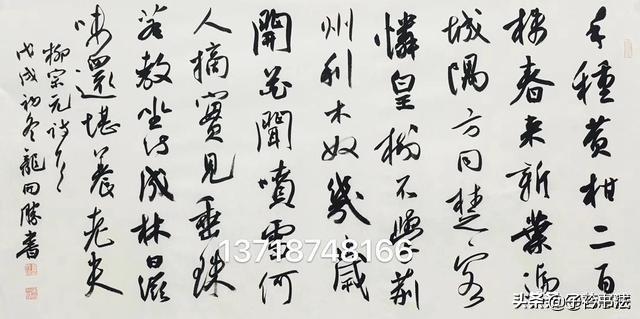 手種黃柑二百
株春來新葉遍
城隅方同楚客
憐皇樹不學荊
州利木奴幾歲
開花聞噴雪何
人摘實見垂珠
若教坐待成林日滋
味還堪養老夫
柳宗元詩
戊戌初冬龍勝書
13718748166
头条 书法